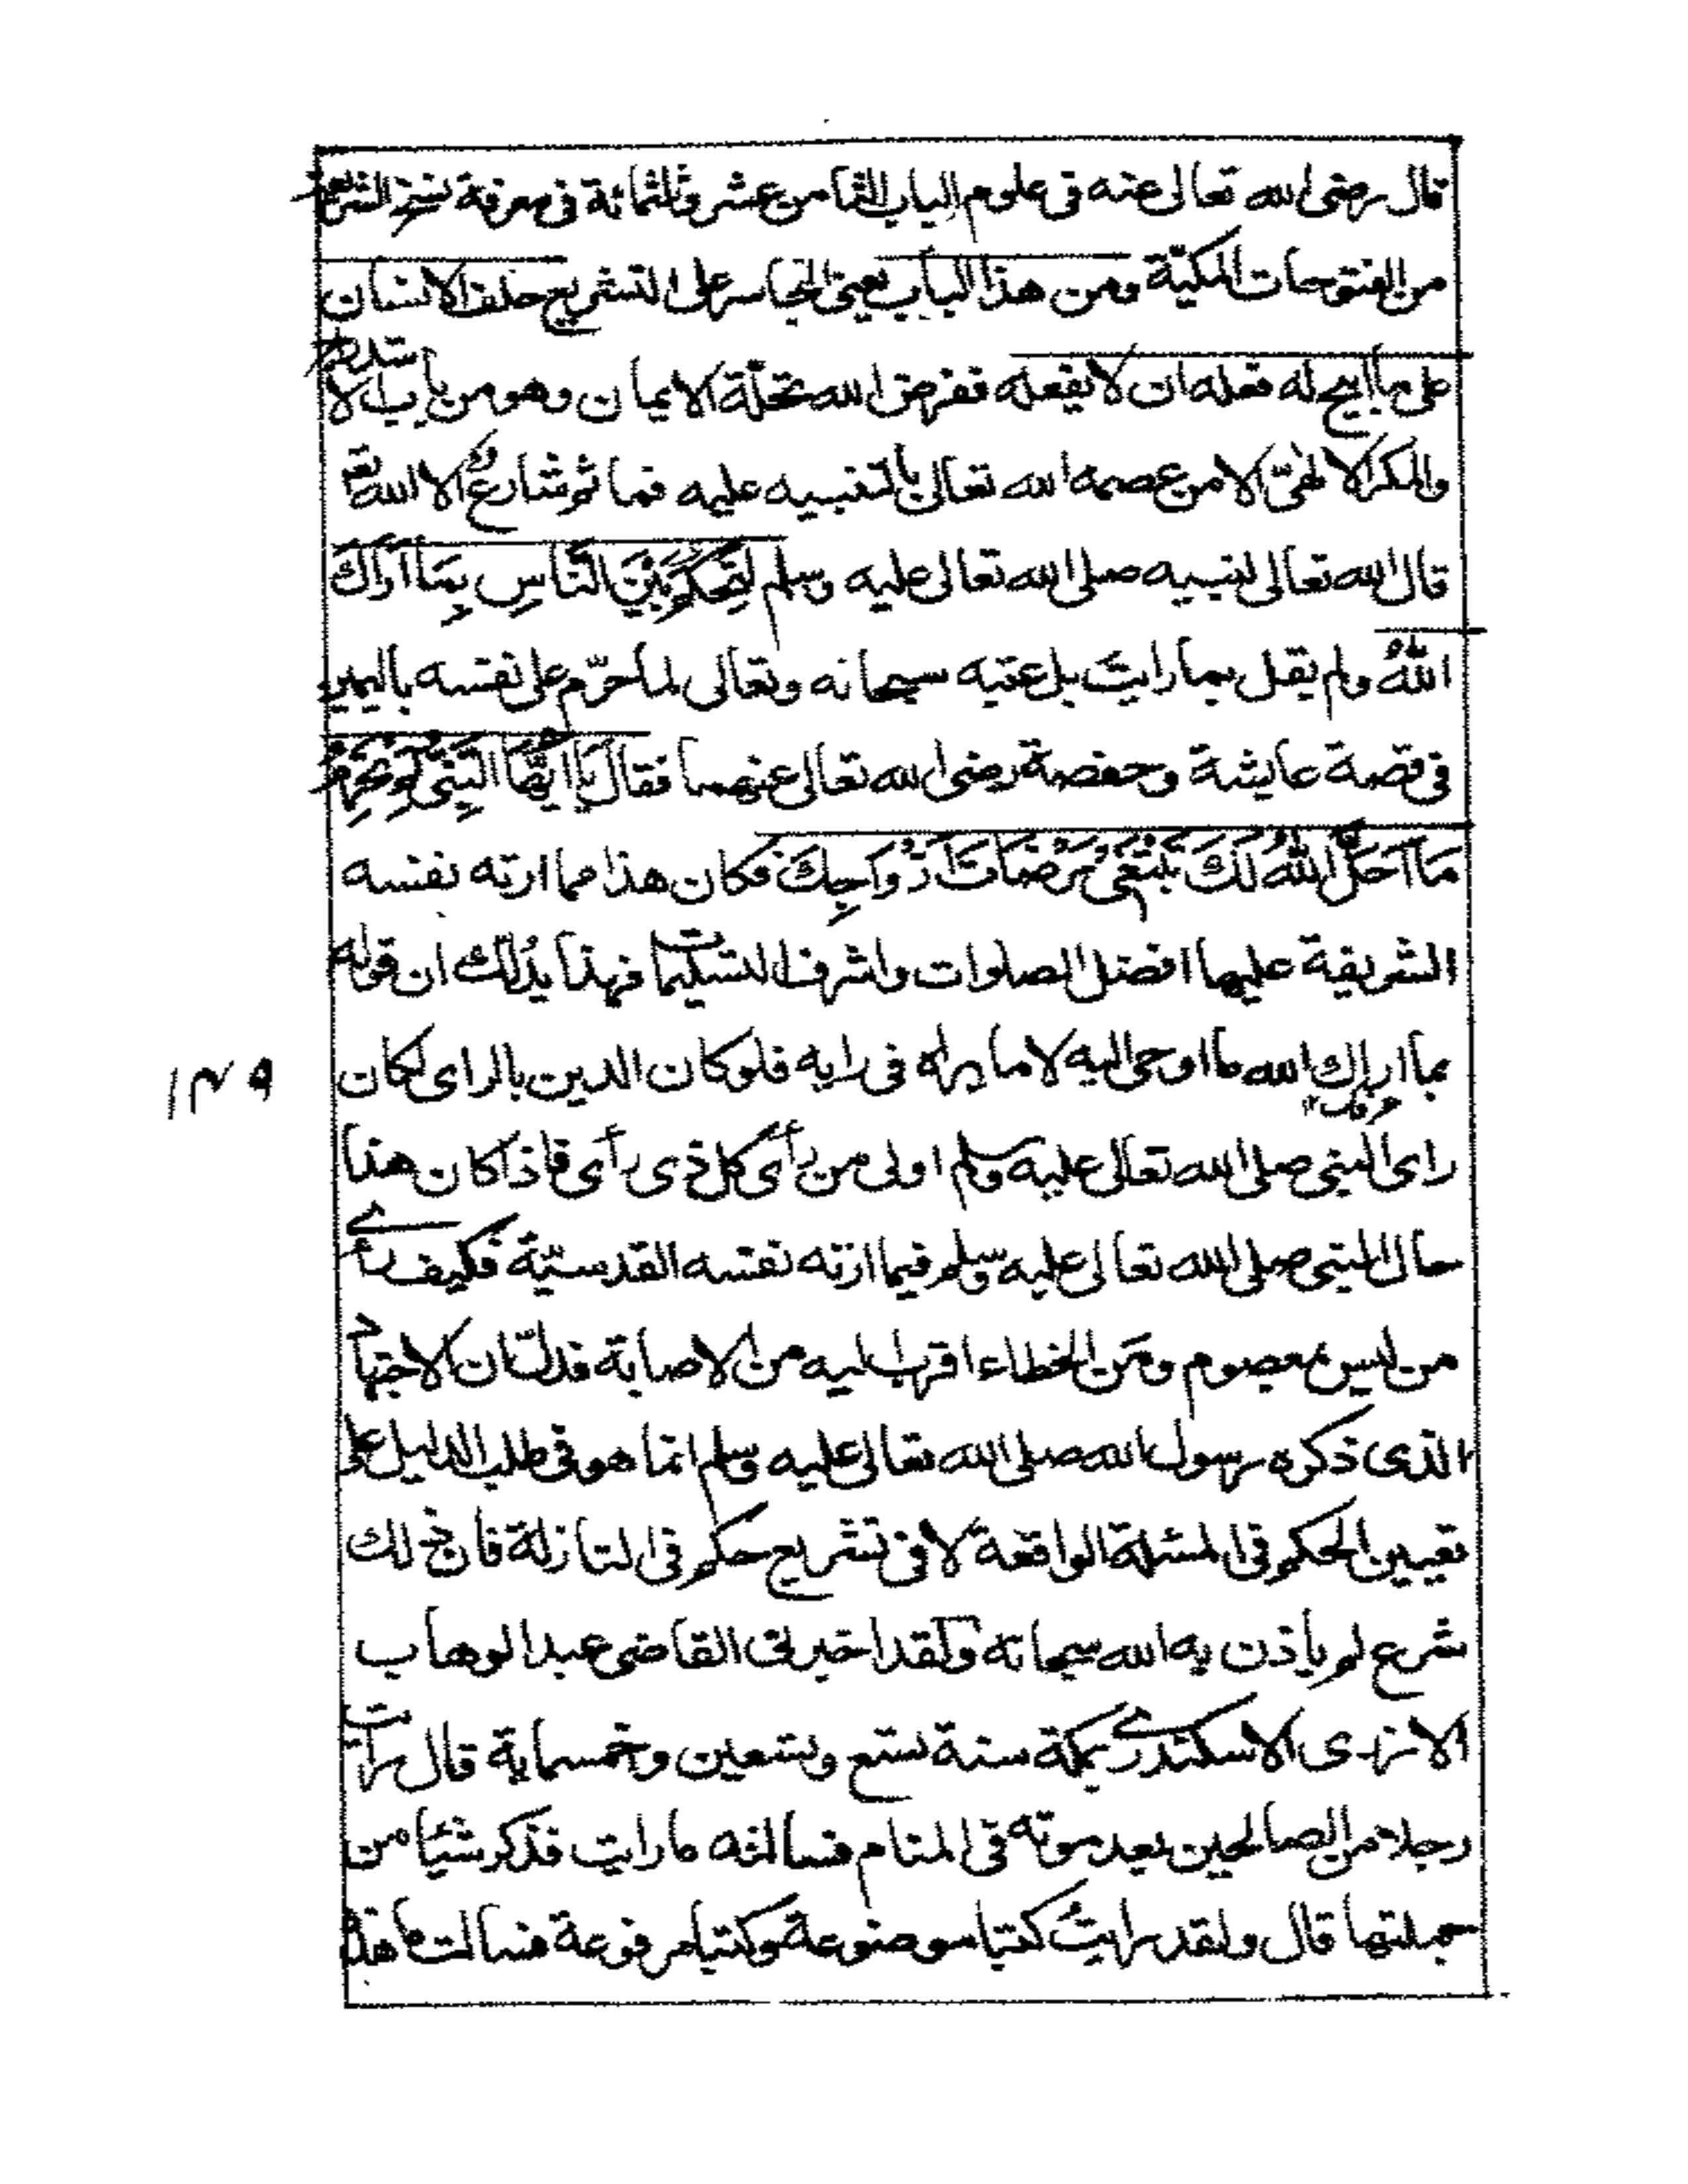 قال رضى الله تعالى عنه فى علوم الباب الثامن عشر وثلثمائة فى معرفة نسخ الشرائع
من الفتوحات المكيّة ومن هذا الباب يعنى التجاسر على التشريع حلف الانسان
على ما ابيح له فعله ان لا يفعله ففرض الله تحلّة الايمان وهو من باب الاستدراج
والمكر الالهىّ الا من عصمه الله تعالى بالتنبيه عليه فما ثم شارع الا الله تع
قال الله تعالى لنبيه صلى الله تعالى عليه وسلم لِتَحْكُمَ بَيْنَ النَّاسِ بِمَا اَرَاكَ
اللّٰهُ ولم يقل بما رايت بل عتبه سبحانه وتعالى لما حرّم على نفسه باليمين
فى قصة عايشة وحفصة رضى الله تعالى عنهما فقال يَا اَيُّهَا النَّبِىُّ لِمَ تُحَرِّمُ
مَا اَحَلَّ اللّٰهُ لَكَ تَبْتَغِى مَرْضَاتَ اَزْوَاجِكَ فكان هذا مما ارته نفسه
الشريفة عليها افضل الصلوات واشرف التسليمات فهذا يدُلّك ان قوله
بما اراك الله ما اوحى اليه لا ما يراه فى رايه فلو كان الدين بالراى لكان
عرفك ١٢
١٢٧٩
راى النبى صلى الله تعالى عليه وسلم اولى من رأى كل ذى رأى فاذا كان هذا
حال النبى صلى الله تعالى عليه وسلم فيما ارته نفسه القدسيّة فكيف رأى
من ليس بمعصوم ومَن الخطاء اقرب اليه من الاصابة فدلّ ان الاجتهاد
الذى ذكره رسول الله صلى الله تعالى عليه وسلم انما هو فى طلب الدليل على
تعيين الحكم فى المسئلة الواقعة لا فى تشريع حكم فى النازلة فان ذلك
شرع لم ياذن به الله سبحانه ولقد اخبرنى القاضى عبد الوهاب
الازدى الاسكندرى بمكة سنة تسع وتسعين وخمسماية قال رأيت
رجلا من الصالحين بعد موته فى المنام فسالته ما رايت فذكر شيئا من
جملتها قال ولقد رايت كتبا موضوعة وكتبا مرفوعة فسالت ما هذه